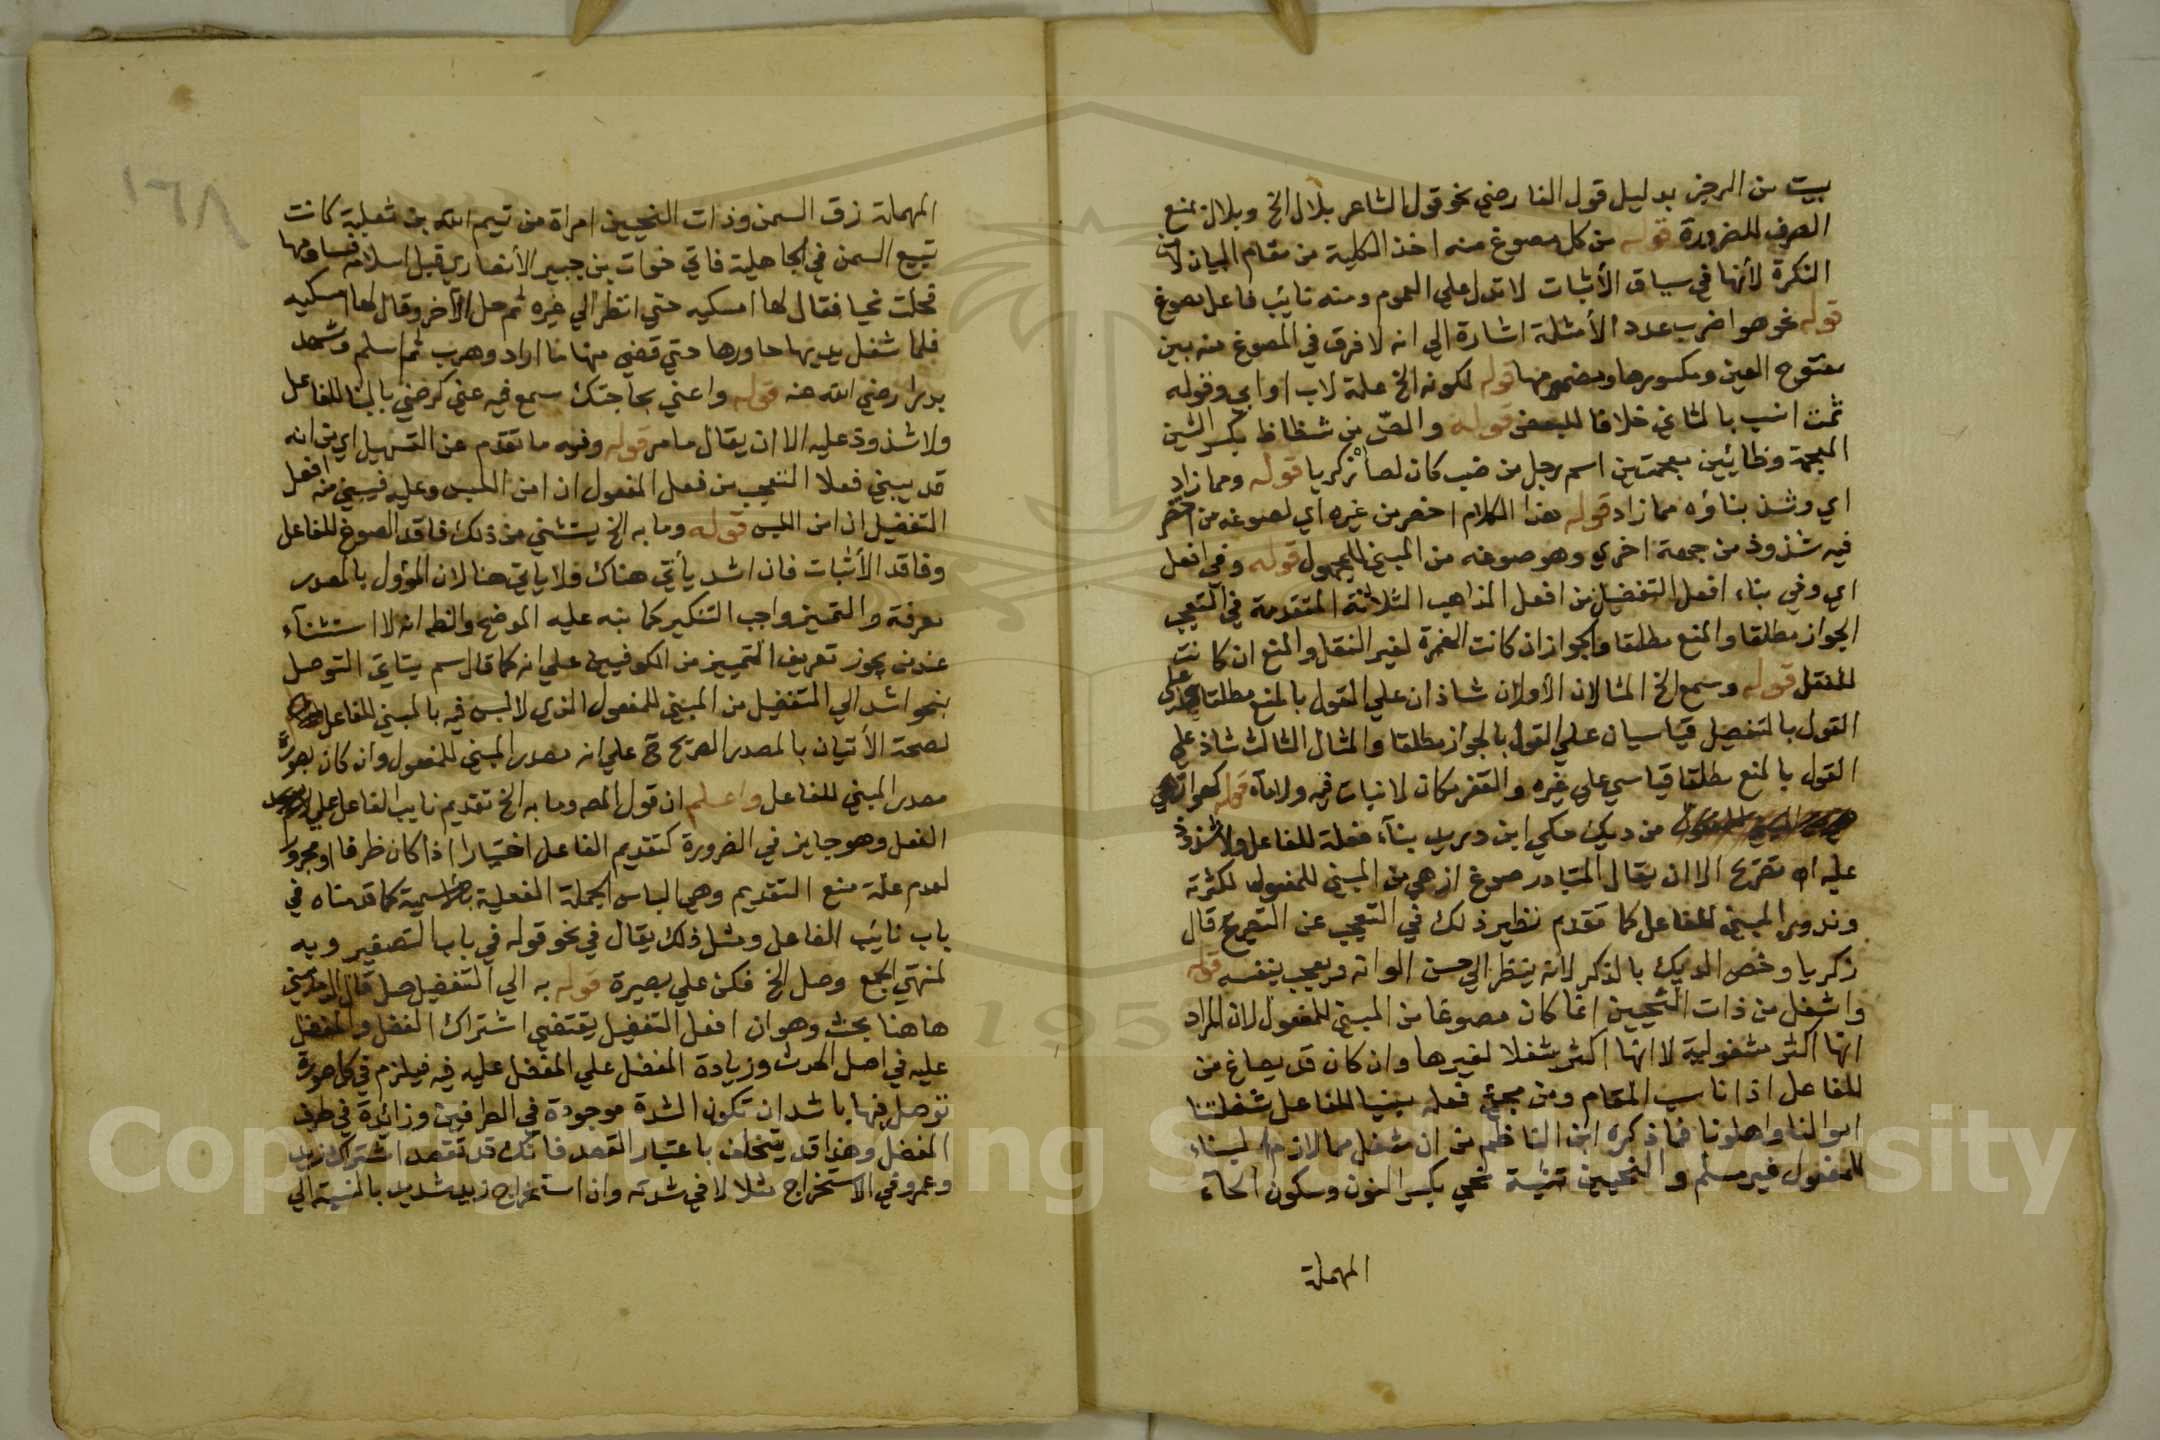 بيت من الرجز بدليل قول الفارضي نحو قول الشاعر بلال الخ وبلال بمنع
الصرف للضرورة قوله من كل مصوغ منه اخذ الكلية من مقام البيان لان
النكرة لأنها في سياق الأثبات لا تدل علي العموم ومنه نائب فاعل مصوغ
قوله نحو هو اضرب عدد الأمثلة اشارة الي انه لا فرق في المصوغ منه بين
مفتوح العين ومكسورها ومضمومها قوله لكونه الخ علة لاب او ابي وقوله
ثمت انسب بالثاني خلافا للبعض قوله والصّ من شظاظ بكسر الشين
المعجمة وظائين بمعجمتين اسم رجل من ضب كان لصا زكريا قوله ومما زاد
اي وشذ بناؤه مما زاد قوله هذا الكلام اخصر من غيره اي لصوغه من اختصر
فيه شذوذ من جهة اخري وهو صوغه من المبني للمجهول قوله وفي افعل
اي وفي بناء افعل التفضيل من افعل المذاهب الثلاثة المتقدمة في التعجب
الجواز مطلقا والمنع مطلقا والجواز ان كانت الهمزة لغير النقل والمنع ان كانت
للنقل قوله وسمع الخ المثالان الأولان شاذان علي القول بالمنع مطلقا وعلي
القول بالتفصيل قياسيان علي القول بالجواز مطلقا والمثال الثالث شاذ علي
القول بالمنع مطلقا قياسي علي غيره والقفر مكان لا نبات فيه ولا ماء قوله هو ازهي
من ديك حكي ابن دريد بناء فعله للفاعل ولا شذوذ
عليه اه تصريح الا ان يقال المتبادر صوغ ازهي من المبني للمفعول لكثرته
وندور المبني للفاعل كما تقدم نظير ذلك في التعجب عن التصريح قال
زكريا وخص الديك بالذكر لانه ينظر الي حسن الوانه ويعجب بنفسه قوله
واشغل من ذات النحيين انما كان مصوغا من المبني للمفعول لان المراد
انها اكثر مشغولية لا انها اكثر شغلا لغيرها وان كان قد يصاغ من
للفاعل اذا ناسب المقام ومن مجئ فعله مبنيا للفاعل شغلتنا
اموالنا واهلونا فما ذكره ابن الناظم من ان شغل مما لازم لبناء
للمفعول غير مسلم والنحيين تثنية نحي بكسر النون وسكون الحاء
المهملة
١٦٨
المهملة زق السمن وذات النحيين امراة من تيم الله بن ثعلبة كانت
تبيع السمن في الجاهلية فاتي خوات بن جبير الأنصاري قبل اسلامه فساومها
فحلت نحيا فقال لها امسكيه حتي انظر الي غيره ثم حل الآخر وقال لها امسكيه
فلما شغل يديها حاورها حتي قضي منها ما اراد وهرب ثم اسلم وشهد
بدرا رضي الله عنه قوله واعني بحاجتك سمع فيه عني كرضي بالبنا للفاعل
ولا شذوذ عليه الا ان يقال ما مر قوله وفيه ما تقدم عن التسهيل اي من انه
قد يبني فعلا التعجب من فعل المفعول ان امن اللبس وعليه فيبني منه افعل
التفضيل ان امن اللبس قوله وما به الخ يستثني من ذلك فاقد الصوغ للفاعل
وفاقد الأثبات فان اشد يأتي هناك فلا ياتي هنا لان المؤول بالمصدر
معرفة والتمييز واجب التنكير كما نبه عليه الموضح والظ انه لا استثناء
عند من يجوز تعريف التمييز من الكوفيين علي انه كما قال سم يتاتي التوصل
بنحو اشد الي التفضيل من المبني للمفعول الذي لا لبس فيه بالمبني للفاعل
لصحة الأتيان بالمصدر الصريح ح علي انه مصدر المبني للمفعول وان كان بصورة
مصدر المبني للفاعل واعلم ان قول المص وما به الخ تقديم نايب الفاعل علي
الفعل وهو جايز في الضرورة كتقديم الفاعل اختيارا اذا كان ظرفا او مجرورا
لعدم علة منع التقديم وهي الباس الجملة الفعلية بالأسمية كما قدمناه في
باب نائب الفاعل ومثل ذلك يقال في نحو قوله في باب التصغير وبه
لمنتهي الجمع وصل الخ فكن علي بصيرة قوله به الي التفضيل صل قال الدماميني
هاهنا بحث وهو ان افعل التفضيل يقتضي اشتراك المفضل والمفضل
عليه في اصل الحدث وزيادة المفضل علي المفضل عليه فيه فيلزم في كل صورة
توصل فيها باشد ان تكون الشدة موجودة في الطرفين وزائدة في طرف
المفضل وهذا قد يتخلف باعتبار القصد فانك قد تقصد اشتراك زيد
وعمرو في الاستخراج مثلا لا في شدته وان استخراج زيد شديد بالنسبة الي
Copyright King Saud University
195